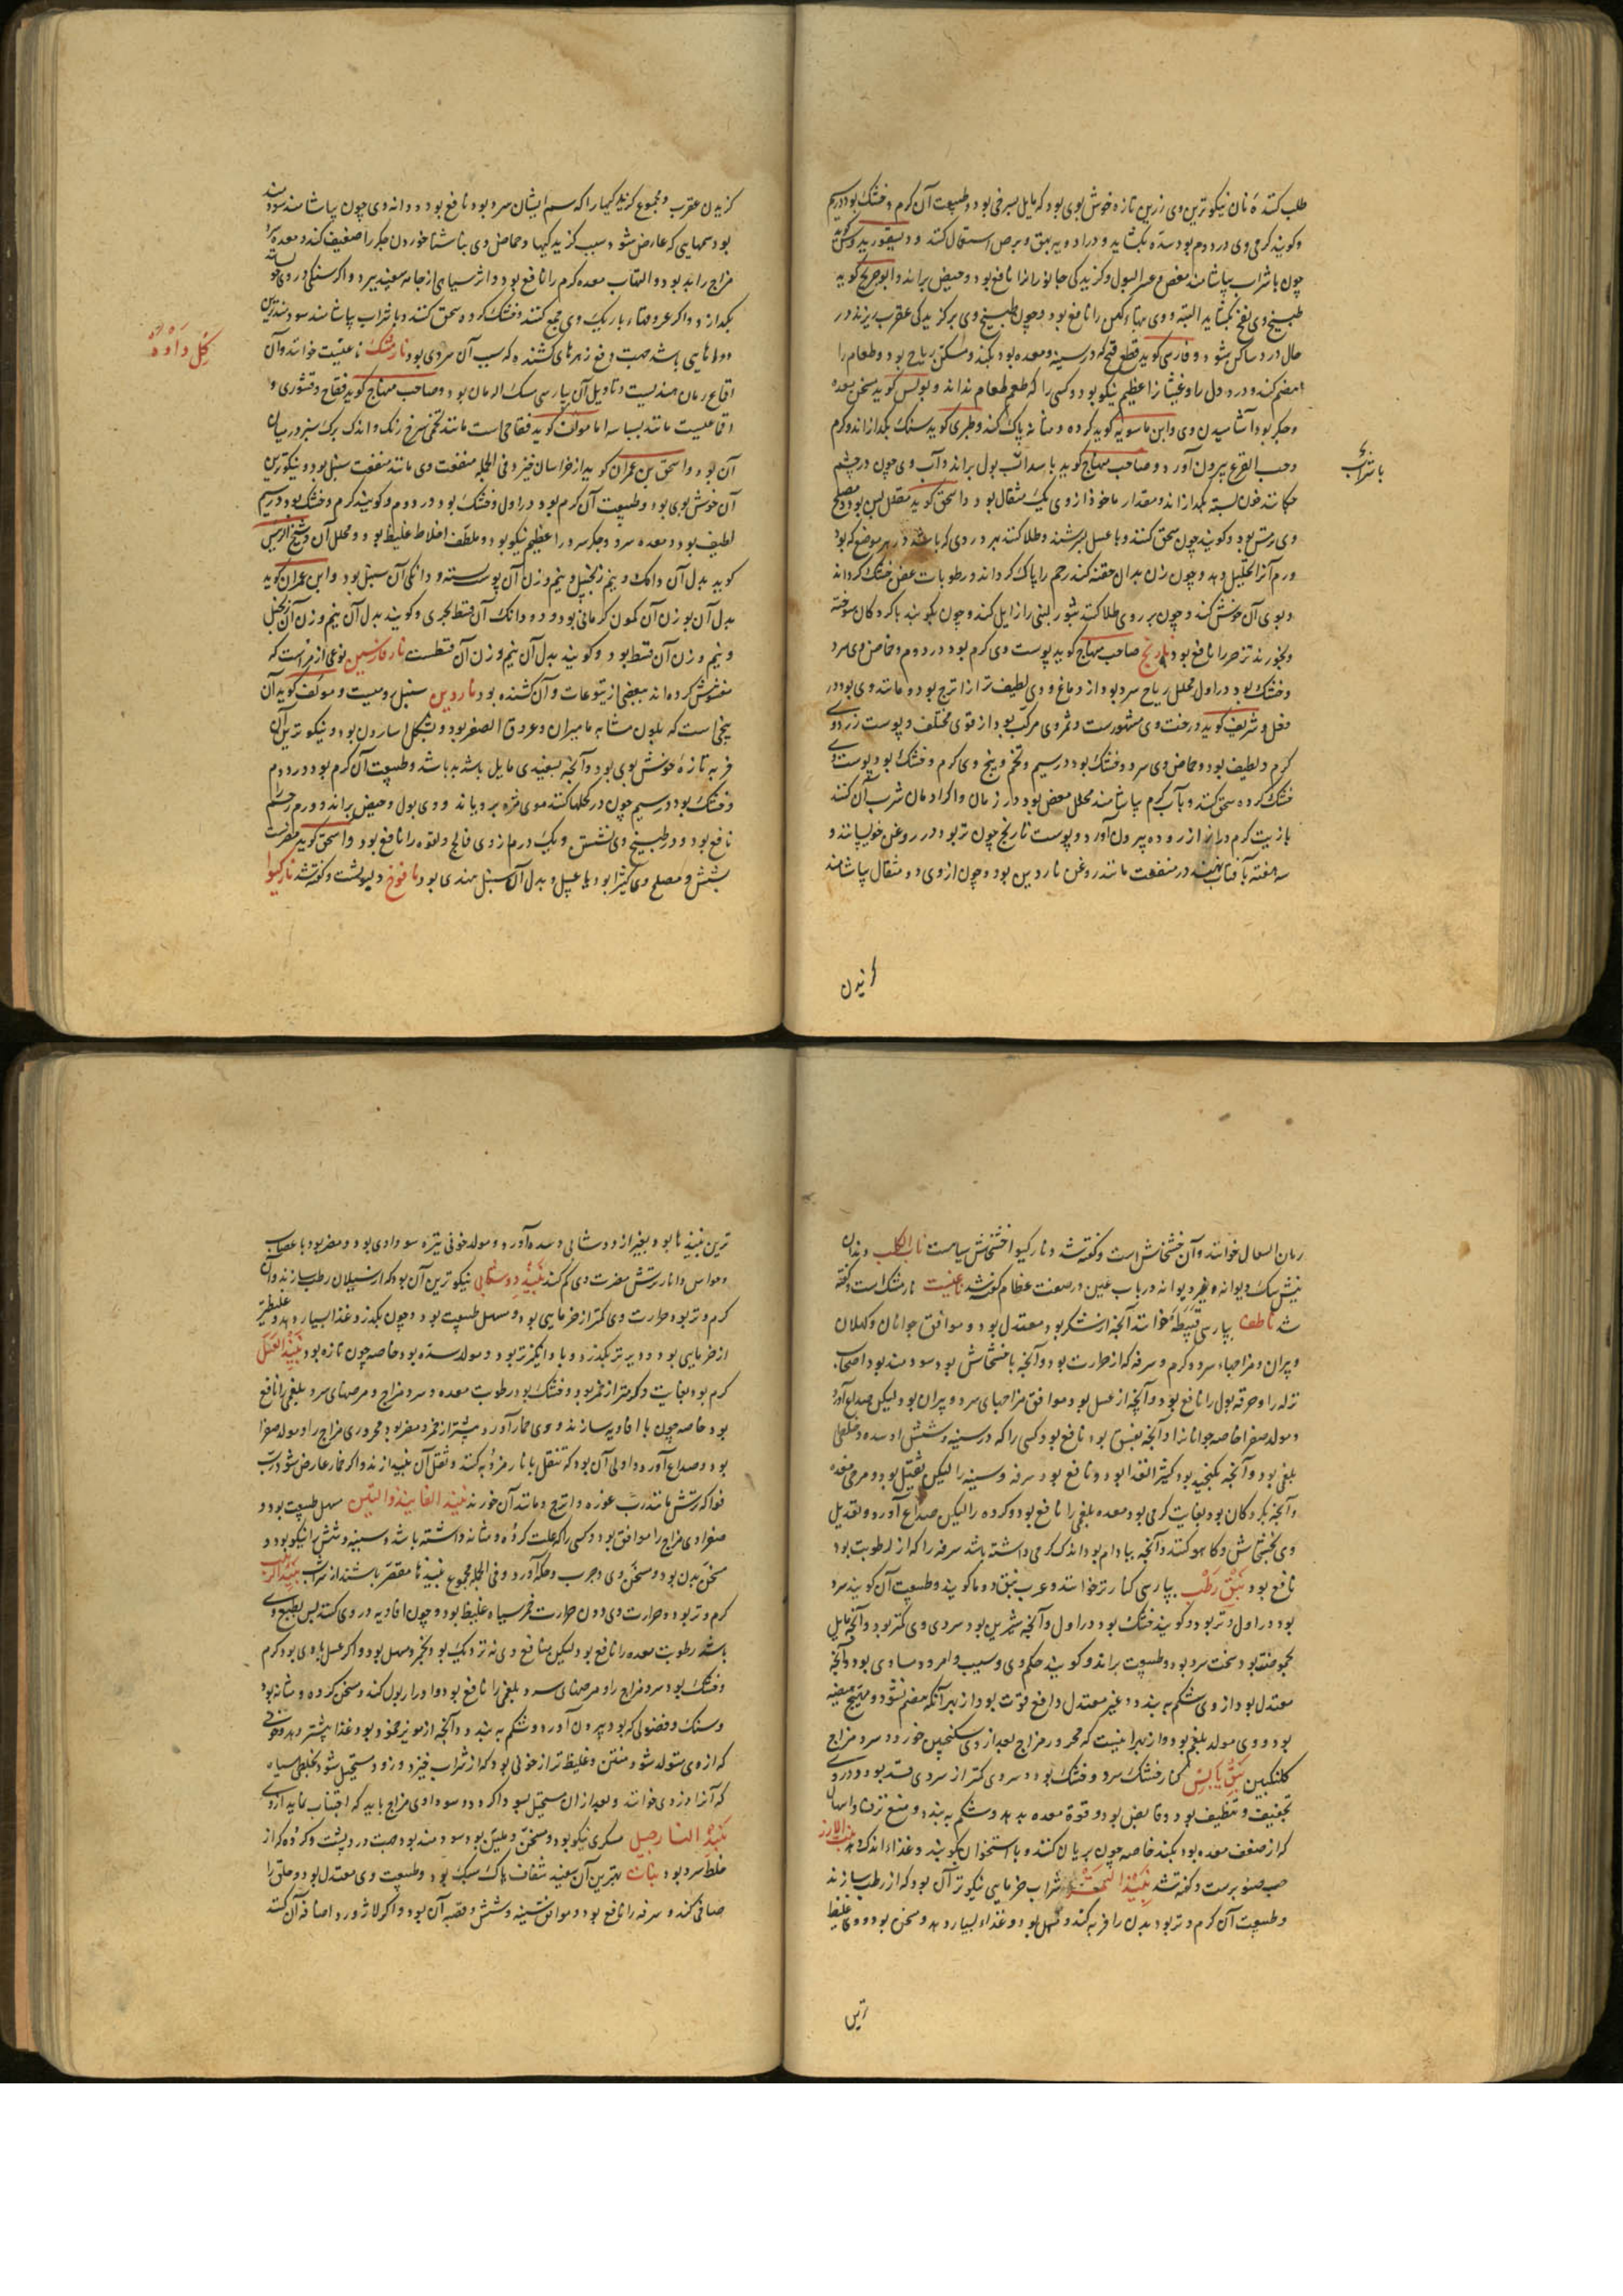 طلب کنند نان نیکوترین وی زرین تازه خوش بوی بود که مایل بسرخی بود و طبیعت آن گرم و خشک بود در سیم
و گویند گرمی وی در دوم بود سده بگشاید و در ادویه بهق و برص استعمال کنند و دیسقوریدوس گوید
چون با شراب بیاشامند مغص و عسر البول و گزیدگی جانورانرا نافع بود و حیض براند و ابوجریج گوید
طبیخ وی نفخ بگشاید البته و وی تبهاء کهن را نافع بود و چون طبیخ وی بر گزیدگی عقرب ریزند در
حال درد ساکن شود و فارسی گوید قطع قیح که در سینه و معده بود بکند و مسکن ریاح بود و طعام را
هضم کند و درد دل را و غثیان را عظیم نیکو بود و کسی را که طعم طعام نداند و بولس گوید مسخن معده
و جگر بود آشامیدن وی و ابن ماسویه گوید گرده و مثانه پاک کند و طبری گوید سنگ بگدازاند و کرم
و حب القرع بیرون آورد و صاحب منهاج گوید بول براند و آب وی چون در چشم
چکانند خون بسته بگدازاند و مقدار ماخوذ از وی یک مثقال بود و اسحق گوید مقلل لبن بود و مصلح
وی بود و گویند چون سحق کنند و با عسل بسرشند و طلا کنند هر دردی که باشد در هر موضع که بود
ورم آنرا تحلیل دهد و چون زن بدان حقنه کند رحم را پاک گرداند و رطوبات عفن خشک گرداند
و بوی آن خوش کند و چون بر روی طلا کنند بثور لبنی را زایل کند و چون بکوبند با گردکان سوخته
و بخورند زحیر را نافع بود نارنج صاحب منهاج گوید پوست وی گرم بود در دوم و حماض وی سرد
و خشک بود در اول محلل ریاح سرد بود از دماغ و وی لطیف تر از اترج بود و مانند وی بود در
فعل و شریف گوید درخت وی مشهورست و ثمر وی مرکب بود از قوی مختلف و پوست زرد وی
گرم و لطیف بود و حماض وی سرد و خشک بود در سیم و تخم و بیخ وی گرم و خشک بود و پوست وی
خشک کرده سحق کنند و بآب گرم بیاشامند محلل مغص بود در زمان و اگر ادمان شرب آن کنند
با زیت کرم دراز از روده بیرون آورد و پوست نارنج چون تر بود در روغن خویسانند و
سه هفته بآفتاب نهند در منفعت مانند روغن ناردین بود و چون از وی دو مثقال بیاشامند
با شراب
گزیدن
گزیدن عقرب و مجموع گزندگیها را که سم ایشان سرد بود نافع بود و دانه وی چون بیاشامند سودمند
بود سمهایی که عارض شود سبب گزیدگیها و حماض وی بناشتا خوردن جگر را ضعیف کند و معده سرد
مزاج را بد بود و التهاب معده گرم را نافع بود و اثر سیاهی از جامه سفید ببرد و اگر سنگی در وی
بگدازد و اگر عروقهاء باریک وی جمع کنند و خشک کرده سحق کنند و با شراب بیاشامند سودمندترین
دواهایی باشد جهت دفع زهرهای کشنده که سبب آن سردی بود نارمشک ناغیشت خوانند و آن
اقماع رمان هندیست و تاویل آن بپارسی مسک الرمان بود و صاحب منهاج گوید فقاح و قشوری و
اقماعیست مانند بسباسه اما مولف گوید فقاحی است مانند تخمی سرخ رنگ و اندک برگ سبز در میان
آن بود و اسحق بن عمران گوید از خراسان خیزد و فی الجمله منفعت وی مانند منفعت سنبل بود و نیکوترین
آن خوش بوی بود و طبیعت آن گرم بود در اول و خشک بود در دوم و گویند گرم و خشک بود در سیم
لطیف بود و معده سرد و جگر سرد را عظیم نیکو بود و ملطف اخلاط غلیظ بود و محلل آن و شیخ الرییس
گوید بدل آن دانگ و نیم زنجبیل و نیم وزن آن پوست پسته و دانگی آن سنبل بود و ابن عمران گوید
بدل آن بوزن آن کمون کرمانی بود و دو دانگ آن قسط بحری و گویند بدل آن نیم وزن آن زنجبیل
و نیم وزن آن قسط بود و گویند بدل آن نیم وزن آن قسطست نارفارسین نوعی از مر است که
مغشوش کرده اند ببعضی از یتوعات و آن کشنده بود ناردین سنبل رومیست و مولف گوید آن
بیخی است که بلون مشابه مامیران و عروق الصفر بود و بشکل اسارون بود و نیکوترین آن
فربه تازه خوش بوی بود و آنچه بسفیدی مایل باشد بد باشد و طبیعت آن گرم بود در دوم
و خشک بود در سیم چون در کحلها کنند موی مژه برویاند و وی بول و حیض براند و ورم رحم
نافع بود و در طبیخ وی نشستن و یک درم از وی فالج و لقوه را نافع بود و اسحق گوید مضرست
بشش و مصلح وی کثیرا بود یا عسل و بدل آن سنبل هندی بود نافوخ دلبوثست و گفته شد نارکیوا
گل داوه
رمان السعال خوانند و آن خشخاش است و گفته شد و نارکیوا خشخاش سیاست ناب الکلب دندان
نیش سگ دیوانه و غیر دیوانه در باب عین در صنعت عظام گفته شد ناغیشت نارمشک است و گفته
شد ناطف بپارسی قبیطه خوانند آنچه از شکر بود معتدل بود و موافق جوانان و کهلان
و پیران و مزاجهاء سرد و گرم و سرفه که از حرارت بود و آنچه با خشخاش بود سودمند بود اصحاب
نزله را و حرقه بول را نافع بود و آنچه از عسل بود موافق مزاجهای سرد و پیران بود و لیکن صداع آورد
و مولد صفرا خاصه جوانانرا و آنچه بفستق بود نافع بود کسی را که در سینه و شش او سده و خلطی
بلغمی بود و آنچه بکنجد بود کثیر الغذا بود و نافع بود سرفه و سینه را لیکن ثقیل بود و مرخی معده
و آنچه بگردکان بود بغایت گرمی بود معده بلغمی را نافع بود و گرده را لیکن صداع آورد و تعدیل
وی بخشخاش و کاهو کنند و آنچه ببادام بود اندک گرمی داشته باشد سرفه را که از رطوبت بود
نافع بود نبق رطب بپارسی کنار تر خوانند و عرب نبق دوما گویند و طبیعت آن گویند سرد
بود در اول و تر بود و گویند خشک بود در اول و آنچه شیرین بود سردی وی کمتر بود و آنچه مایل
بحموضت بود سخت سرد بود و طبیعت براند و گویند حکم وی و سیب و امرود مساوی بود و آنچه
معتدل بود از وی شکم ببندد و غیر معتدل دافع قوت بود از بهر آنکه هضم نشود و مهیج هیضه
بود و وی مولد بلغم بود و از بهر اینست که محرور مزاج بعد از وی سکنجبین خورد و سرد مزاج
گلنگبین نبق یابس کنار خشک سرد و خشک بود و سردی کمتر از سردی قند بود و در وی
تجفیف و تلطیف بود و قابض بود و قوة معده بدهد و شکم ببندد و منع نزف و اسهال
که از ضعف معده بود بکند خاصه چون بریان کنند و با استخوان بکوبند و غذاء اندک دهد نبت الارز
حب صنوبرست و گفته شد نبیذ التمر شراب خرمایی نیکوتر آن بود که از رطب سازند
و طبیعت آن گرم و تر بود بدن را فربه کند و مسهل بود و غذاء بسیار دهد و مسخن بود و غلیظ
ترین
ترین نبیذها بود و بغیر از دوشابی و سده آورد و مولد خونی تیره سوداوی بود و مضر بود باعصاب
و حواس و انار ترش مضرت وی کم کند نبیذ دوشابی نیکوترین آن بود که از سیلان رطب سازند و آن
گرم و تر بود و حرارت وی کمتر از خرمایی بود و مسهل طبیعت بود و چون بگذرد غذا بسیار دهد و غلیظتر
از خرمایی بود و دیرتر بگذرد و باد انگیزتر بود و مولد سده بود خاصه چون تازه بود نبیذ العسل
گرم بود بغایت و گرمتر از خمر بود و خشک بود رطوبت معده و سرد مزاج و مرضهای سرد بلغمی را نافع
بود خاصه چون با افاویه سازند و وی خمار آورد بیشتر از خمر و مضر بود محروری مزاج را و مولد صفرا
بود و صداع آورد و اولی آن بود که تنقل بانار مز و به کنند و ثفل آن بیندازند و اگر خمار عارض شود رب
فواکه ترش مانند رب غوره و اترج و مانند آن خورند نبیذ الفانیذ والتین مسهل طبیعت بود و
صفراوی مزاج را موافق بود و کسی را که علت گرده و مثانه داشته باشد و سینه و شش را نیکو بود و
مسخن بدن بود و سحن وی و جرب و حکه آورد و فی الجمله مجموع نبیذها مقصر باشند از شراب نبیذ الزبیب
گرم و تر بود و حرارت وی دون حرارت خمر سیاه غلیظ بود و چون افاویه در وی کنند پس بطبع وی
باشد رطوبت معده را نافع بود لیکن منافع وی نه نزدیک بود بخمر و مسهل بود و اگر عسل با وی بود گرم
و خشک بود سرد مزاج را و مرضهای سرد بلغمی را نافع بود و ادرار بول کند و مسخن گرده و مثانه بود
و سنگ و فضولی که بود بیرون آورد و شکم ببندد و آنچه از مویز مجرد بود غذا بیشتر دهد و خونی
که از وی متولد شود متین و غلیظتر از خونی بود که از شراب خیزد و زود مستحیل شود بخلطی سیاه
که آنرا دردی خوانند و بعد از آن مستحیل بسودا گردد و سوداوی مزاج باید که اجتناب نماید از وی
نبیذ النارجیل مسکری نیکو بود و مسخن و ملین بود سودمند بود جهت درد پشت و گرده که از
خلط سرد بود نبات بهترین آن سفید شفاف پاک سبک بود و طبیعت وی معتدل بود و حلق را
صافی کند و سرفه را نافع بود و موافق سینه و شش و قصبه آن بود و اگر لاژورد اضافه آن کنند